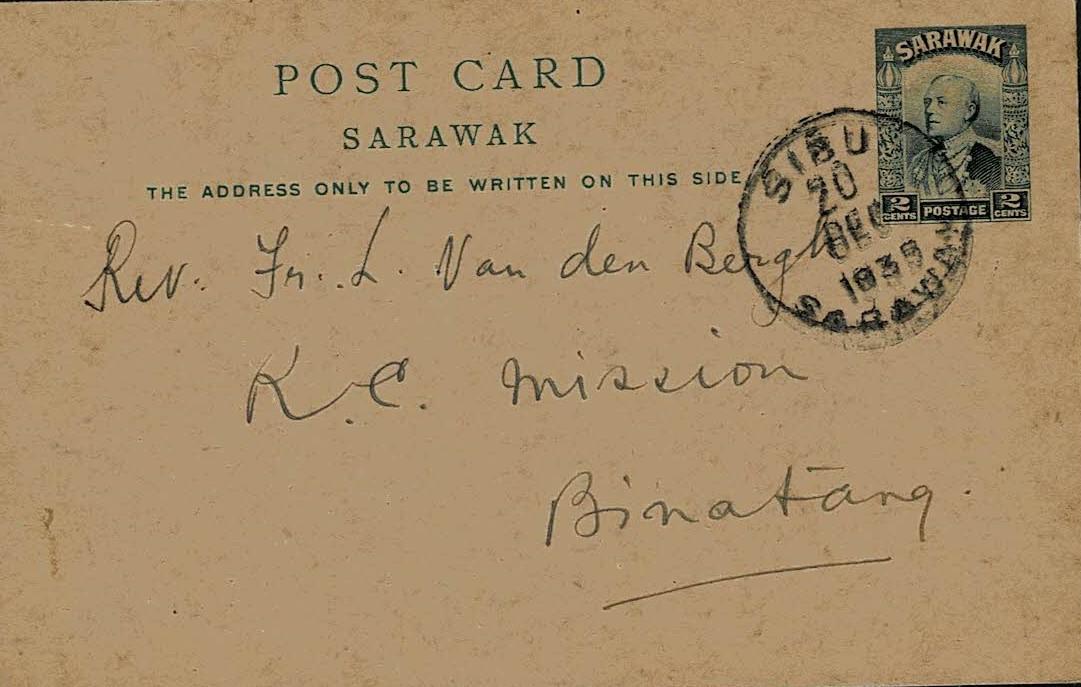 SARAWAK
POST CARD
SARAWAK
THE ADDRESS ONLY TO BE WRITTEN ON THIS SIDE
2 CENTS POSTAGE 2 CENTS
SIBU
20
DEC
SARAWAK
Rev. Fr. L. Van den Bergh
R.C. Mission
Binatang.